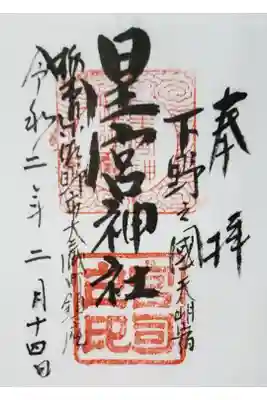 奉拝
下野之國天明宿
星宮神社
栃木県佐野市大蔵町鎮座
令和二年二月十四日